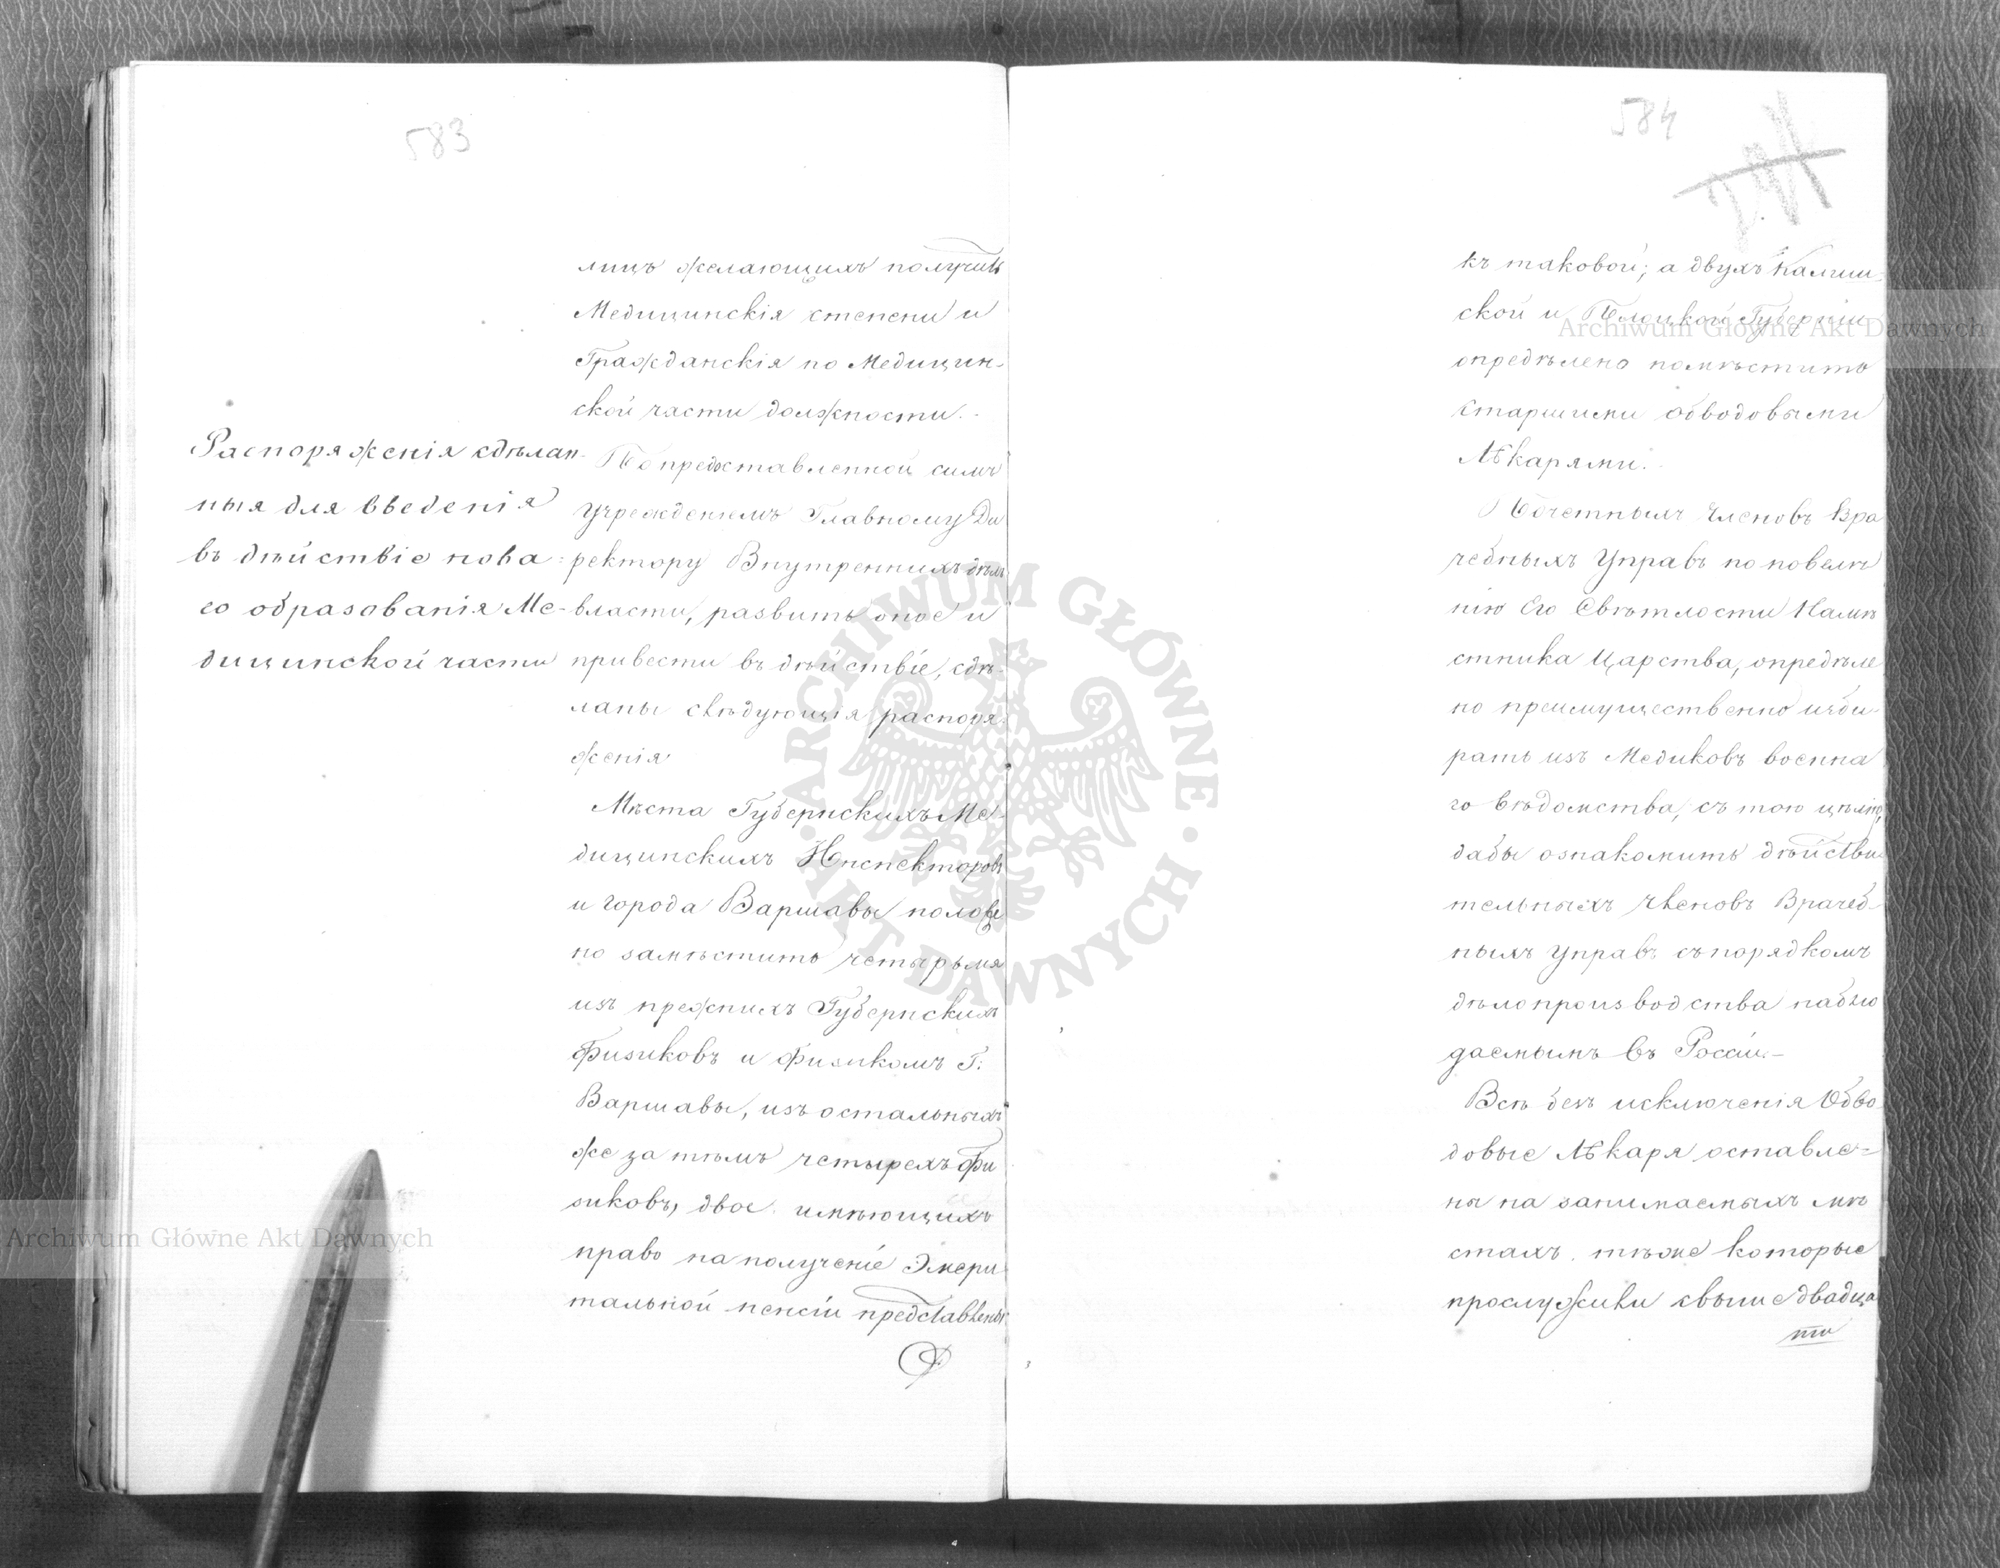 583
лицъ желающихъ получить
Медицинскія степени и
Гражданскія по Медицин-
ской части должности.
Распоряженія сдѣлан-
ныя для введенія
въ дѣйствіе нова-
го образованія Ме-
дицинской части
По предоставленной симъ
учрежденіемъ Главному Ди
ректору Внутреннихъ дѣлъ
власти, развить оное и
привести въ дѣйствіе, сдѣ-
ланы слѣдующія распоря-
женія
Мѣста Губернскихъ Ме-
дицинскихъ Инспекторовъ
и города Варшавы положе
но замѣстить четырьмя
изъ прежнихъ Губернскихъ
Физиковъ и Физикомъ Г:
Варшавы, изъ остальныхъ
же за тѣмъ четырехъ Фи
зиковъ, двое имѣющихъ
право на полученіе Эмери
тальной пенсіи представлены
584
къ таковой; а двухъ Калиш-
ской и Плоцкой Губерніи
опредѣлено помѣстить
старшими обводовыми
Лѣкарями.
Почетныхъ Членовъ Вра
чебныхъ Управъ по повелѣ
нію Его Свѣтлости Намѣ
стника Царства, опредѣле
но преимущественно изби-
рать изъ Медиковъ военна
го вѣдомства, съ тою цѣлію,
дабы ознакомить дѣйстви-
тельныхъ Членовъ Врачеб-
ныхъ Управъ съ порядкомъ
дѣлопроизводства наблю
даемымъ въ Россіи.-
Всѣ безъ исключенія Обво
довые Лѣкаря оставле-
ны на занимаемыхъ мѣ
стахъ. тѣже которые
прослужили свыше двадца
ти
Archiwum Główne Akt Dawnych
Archiwum Główne Akt Dawnych
ARCHIWUM GŁÓWNE · AKT DAWNYCH ·